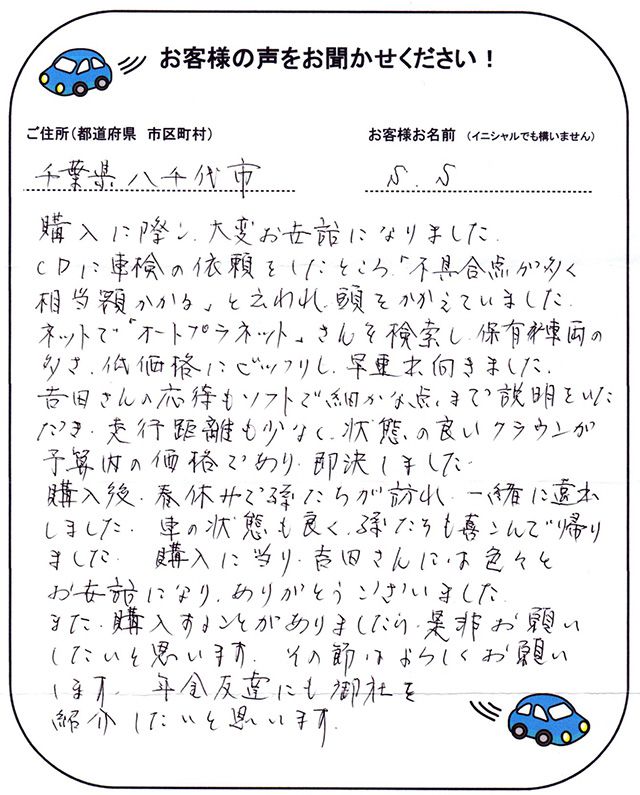 お客様の声をお聞かせください！
ご住所（都道府県 市区町村）
お客様お名前（イニシャルでも構いません）
千葉県八千代市
S.S
購入に際し、大変お世話になりました。
CDに車検の依頼をしたところ、「不具合点が多く
相当額かかる」と云われ、頭をかかえていました。
ネットで「オートプラネット」さんを検索し、保有車両の
多さ、低価格にビックリし、早車出向きました。
吉田さんの応待もソフトで細かな点まで説明をいた
だき、走行距離も少なく、状態の良いクラウンが
予算内の価格であり、即決しました。
購入後、春休みで孫たちが訪れ、一緒に遠出
しました。車の状態も良く、孫たちも喜こんで帰り
ました。購入に当り、吉田さんには色々と
お世話になり、ありがとうございました。
また、購入することがありましたら、是非お願い
したいと思います。その節はよろしくお願い
します。年金友達にも御社を
紹介したいと思います。